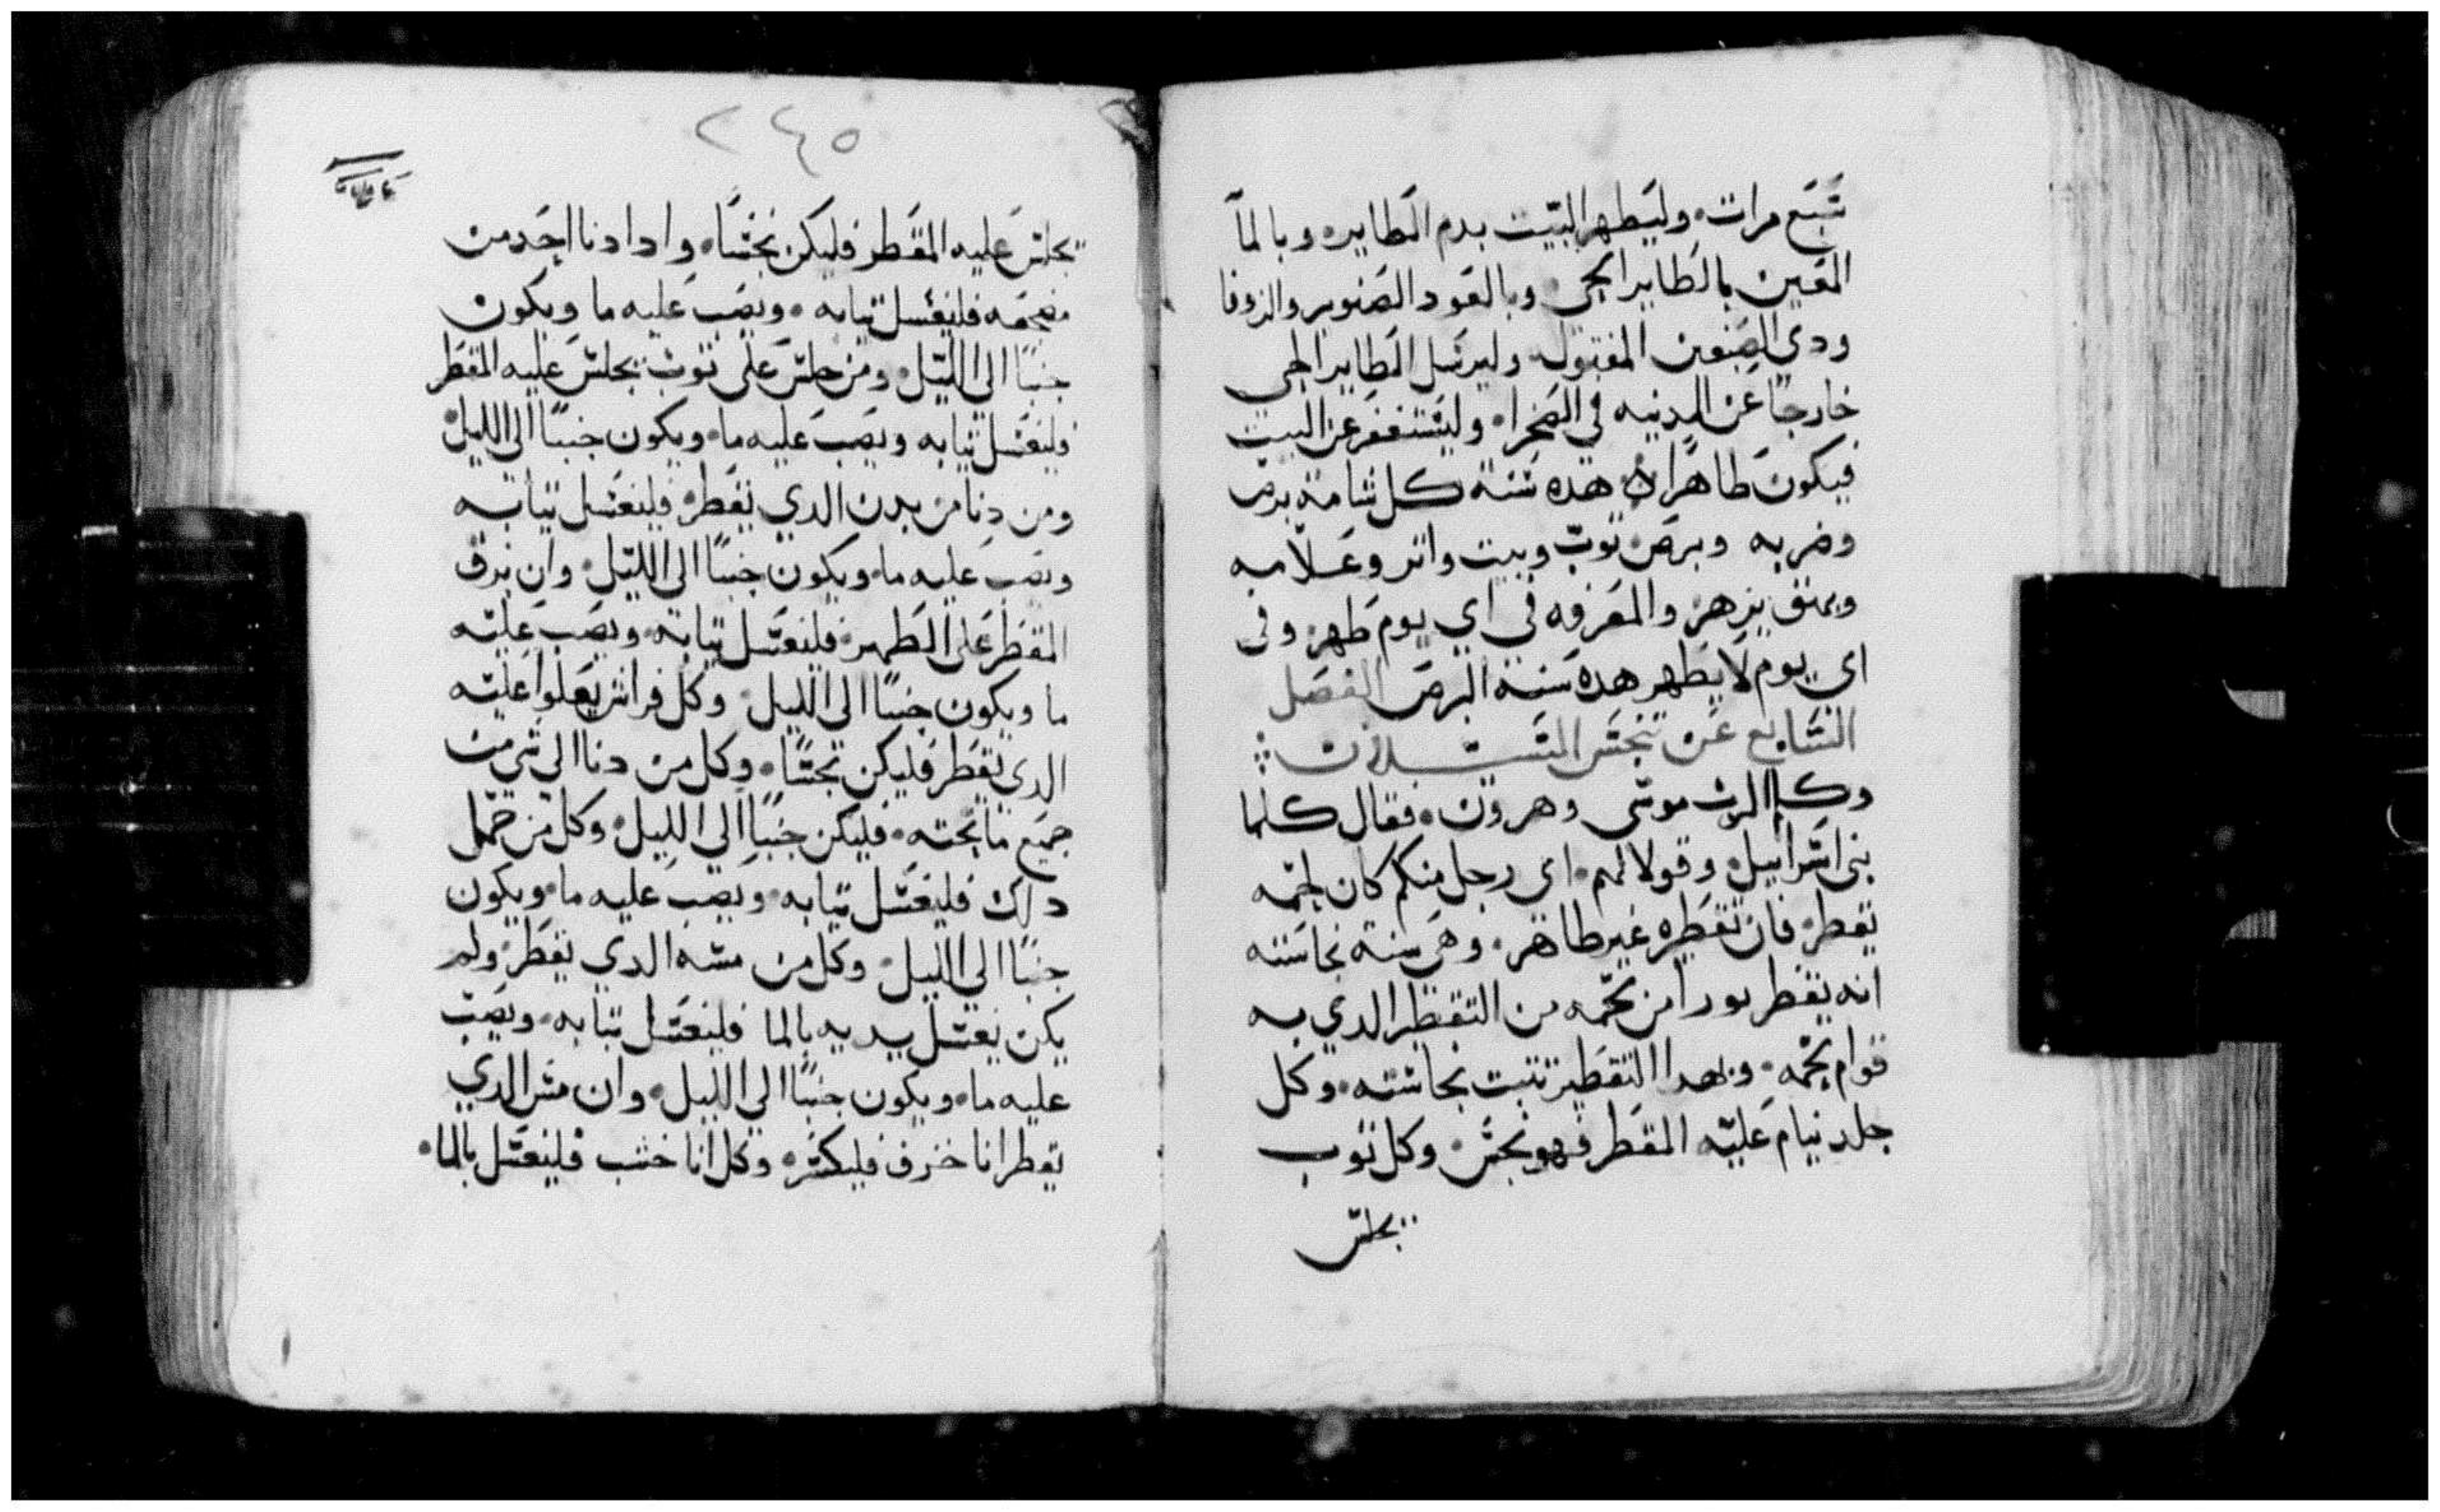 سبع مرات. وليطهر البيت بدم الطاير. وبالما
المعين بالطاير الحي. وبالعود الصنوبر والزوفا
ودي الصبغين المفتول. وليرسل الطاير الحي
خارجًا عن المدينه في الصحرا. وليستغفر عن البيت
فيكون طاهرًا. هده سنة كل شامة برص
وضربه وبرص ثوب وبيت واثر وعلامه
وبهق يزهر والمعرفه في اي يوم طهر. وفى
اي يوم لا يطهر هده سنة البرص الفصل
السابع عن تنجس السيلان
وكلم الرب موسى وهرون. فقال كلما
بني اسراييل. وقولا لهم. اى رجل منكم كان لحمه
يقطر. فان تقطره غير طاهر. وهى سنة نجاسته
انه يقطر بورا من لحمه من التقطير الدي به
قوام لحمه. وبهدا التقطير تتبت نجاسته. وكل
جلد نيام عليه المقطر فهو نجس. وكل ثوب
يجلس
٢٤٥
يجلس عليه المقطر فليكن نجسًا. وادا دنا احد من
مضجعه فليغسل تيابه. ويصب عليه ما ويكون
جنبًا الى الليل. ومن جلس على توب يجلس عليه المقطر
فليغسل تيابه ويصب عليه ما. ويكون جنبًا الى الليل
ومن دنا من بدن الدي يقطر. فليغسل تيابه
ويصب عليه ما. ويكون جنبًا الى الليل. وان بزق
المقطر على الطهر. فليغسل تيابه. ويصب عليه
ما ويكون جنبًا الى الليل. وكل فراش يعلوا عليه
الدي يقطر فليكن نجسًا. وكل من دنا الى شي من
جميع ما تحته. فليكن جنبًا الي الليل. وكل من حمل
دلك فليغسل تيابه. ويصب عليه ما. ويكون
جنبًا الي الليل. وكل من مسه الدي يقطر. ولم
يكن يغسل يديه بالما فليغسل تيابه. ويصب
عليه ما. ويكون جنبًا الي الليل. وان مس الدي
يقطر انا خزف فليكسر. وكل انا خشب فليغسل بالما.